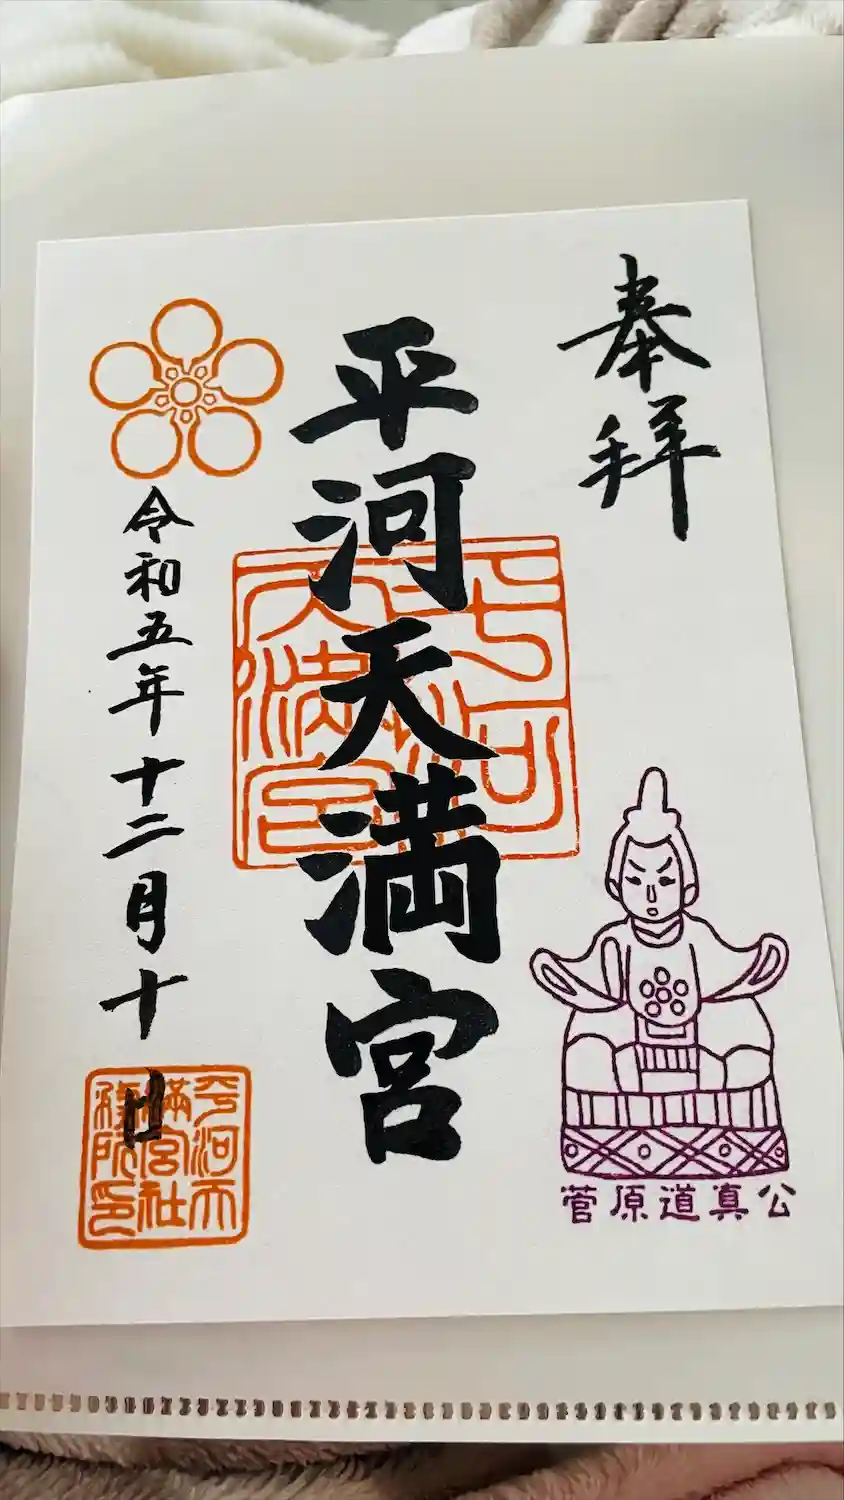 奉拝
平河天満宮
平河天満宮
令和五年十二月十日
平河天満宮社務所印
菅原道真公